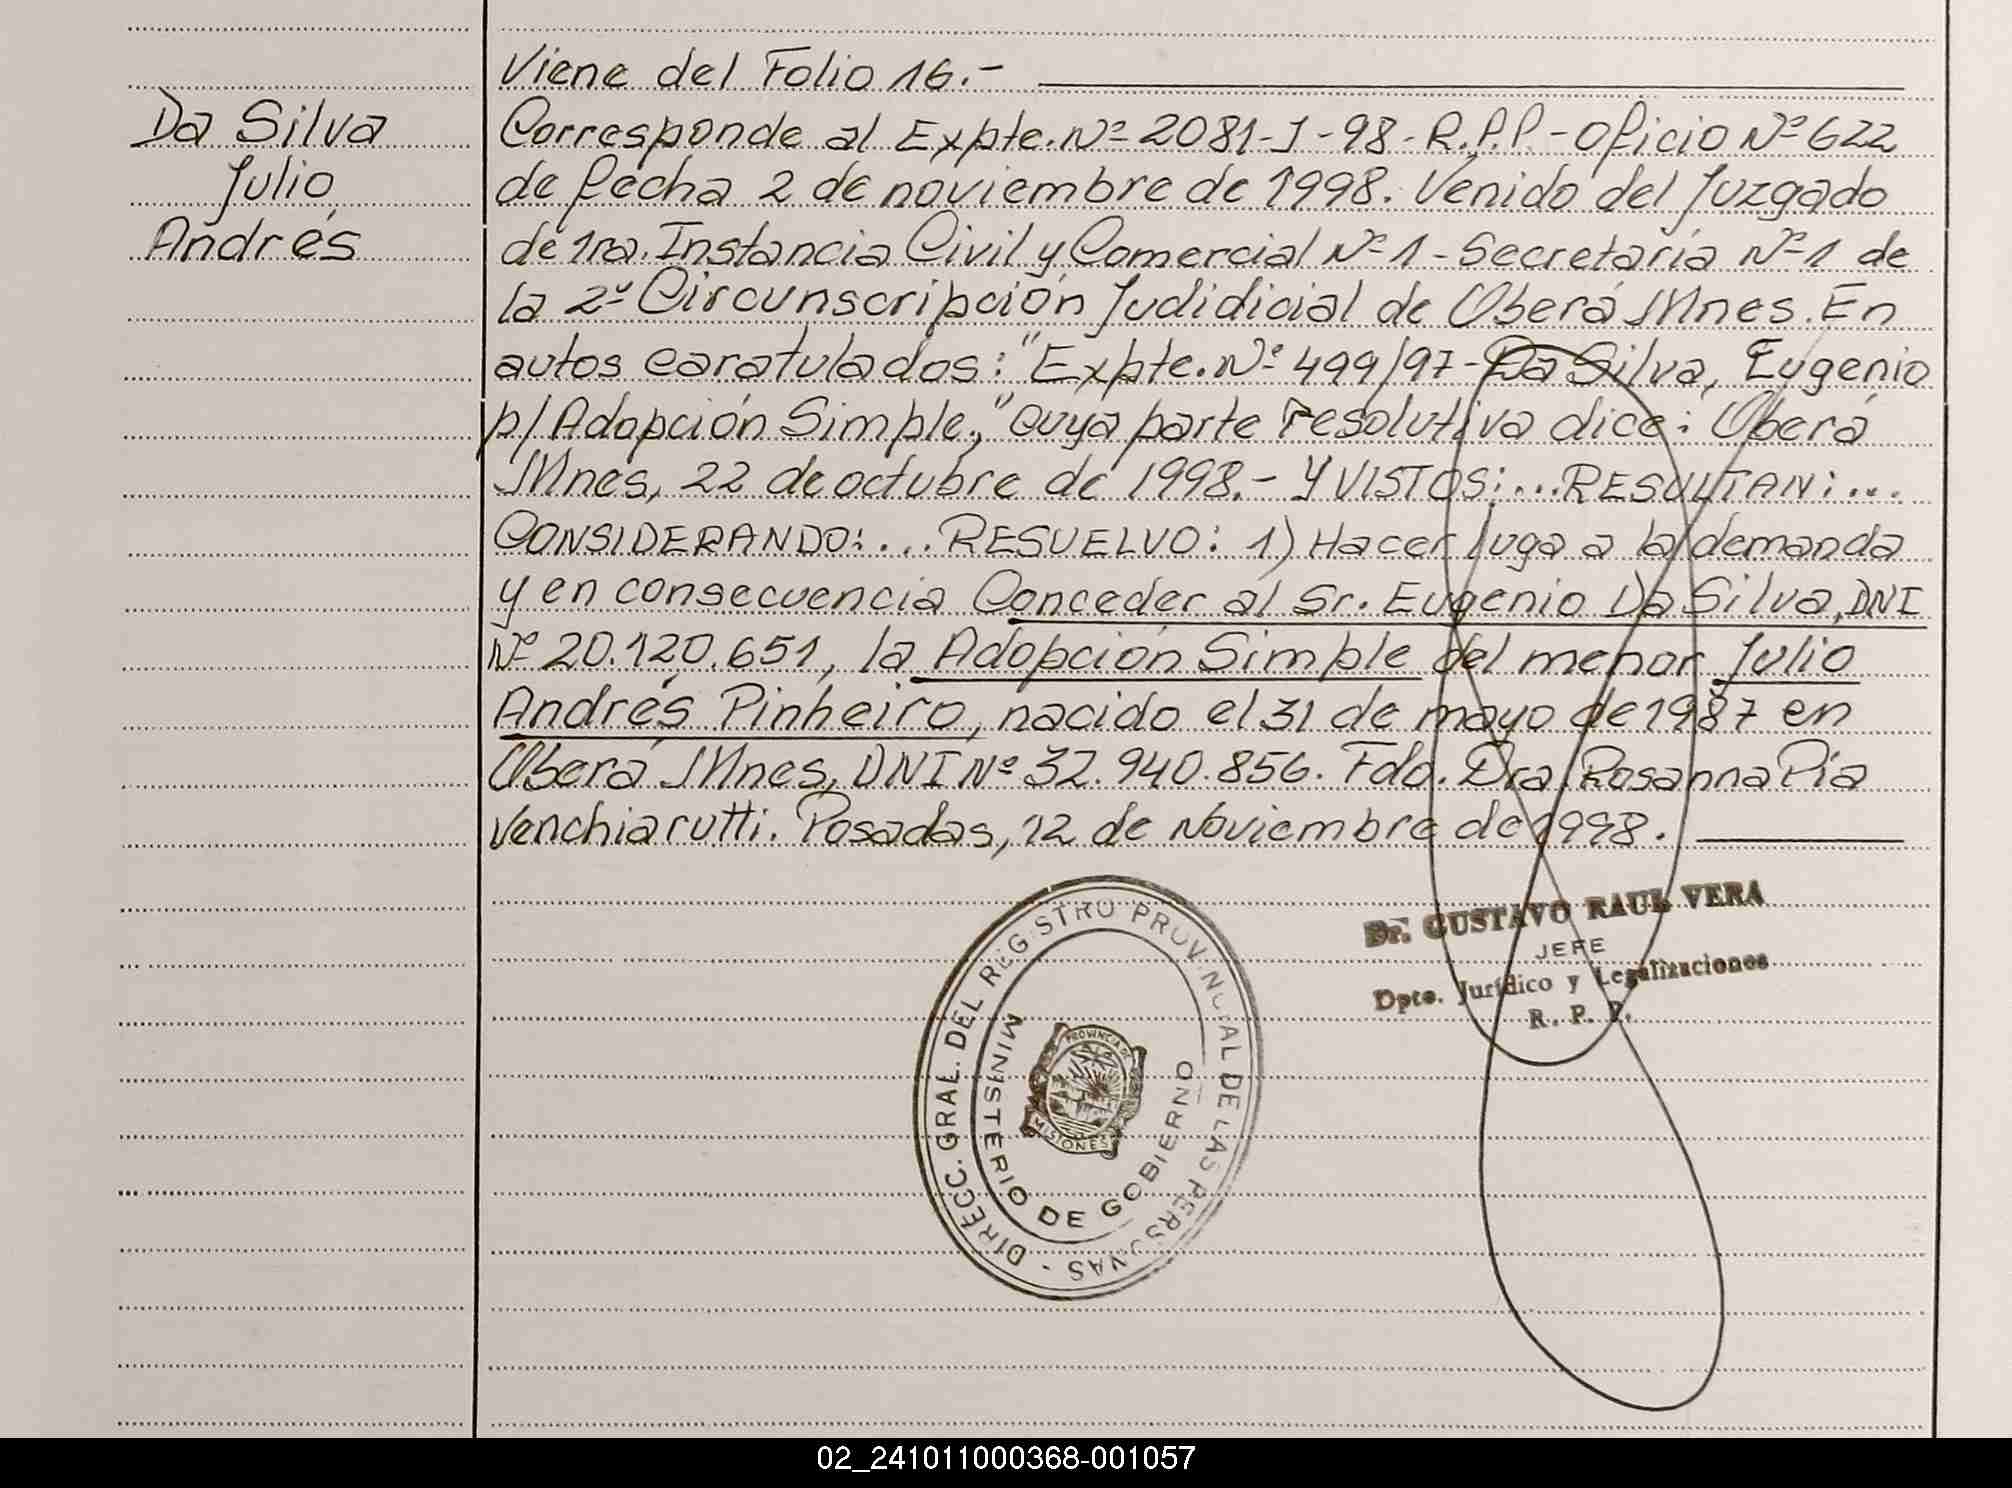 Viene del Folio 16.-
Da Silva
Julio
Andrés
Corresponde al Expte. Nº 2081-J-98-R.P.P.-Oficio Nº 622
de fecha 2 de noviembre de 1998. Venido del Juzgado
de 1ra. Instancia Civil y Comercial Nº 1 - Secretaría Nº 1 de
la 2º Circunscripción Judidicial de Oberá Mnes. En
autos caratulados: "Expte. Nº 499/97-Da Silva, Eugenio
p/ Adopción Simple," cuya parte resolutiva dice: Oberá
Mnes, 22 de octubre de 1998.- Y VISTOS:...RESULTAN:...
CONSIDERANDO:...RESUELVO: 1) Hacer luga a la demanda
y en consecuencia Conceder al Sr. Eugenio Da Silva, DNI
Nº 20.120.651, la Adopción Simple del menor Julio
Andrés Pinheiro, nacido el 31 de mayo de 1987 en
Oberá Mnes, DNI Nº 32.940.856. Fdo. Dra. Rosanna Pía
Venchiarutti. Posadas, 12 de Noviembre de 1998.
Dr. GUSTAVO RAUL VERA
JEFE
Dpto. Jurídico y Legalizaciones
R. P. P.
DIRECC. GRAL. DEL REGISTRO PROVINCIAL DE LAS PERSONAS -
MINISTERIO DE GOBIERNO
PROVINCIA DE
MISIONES
02_241011000368-001057